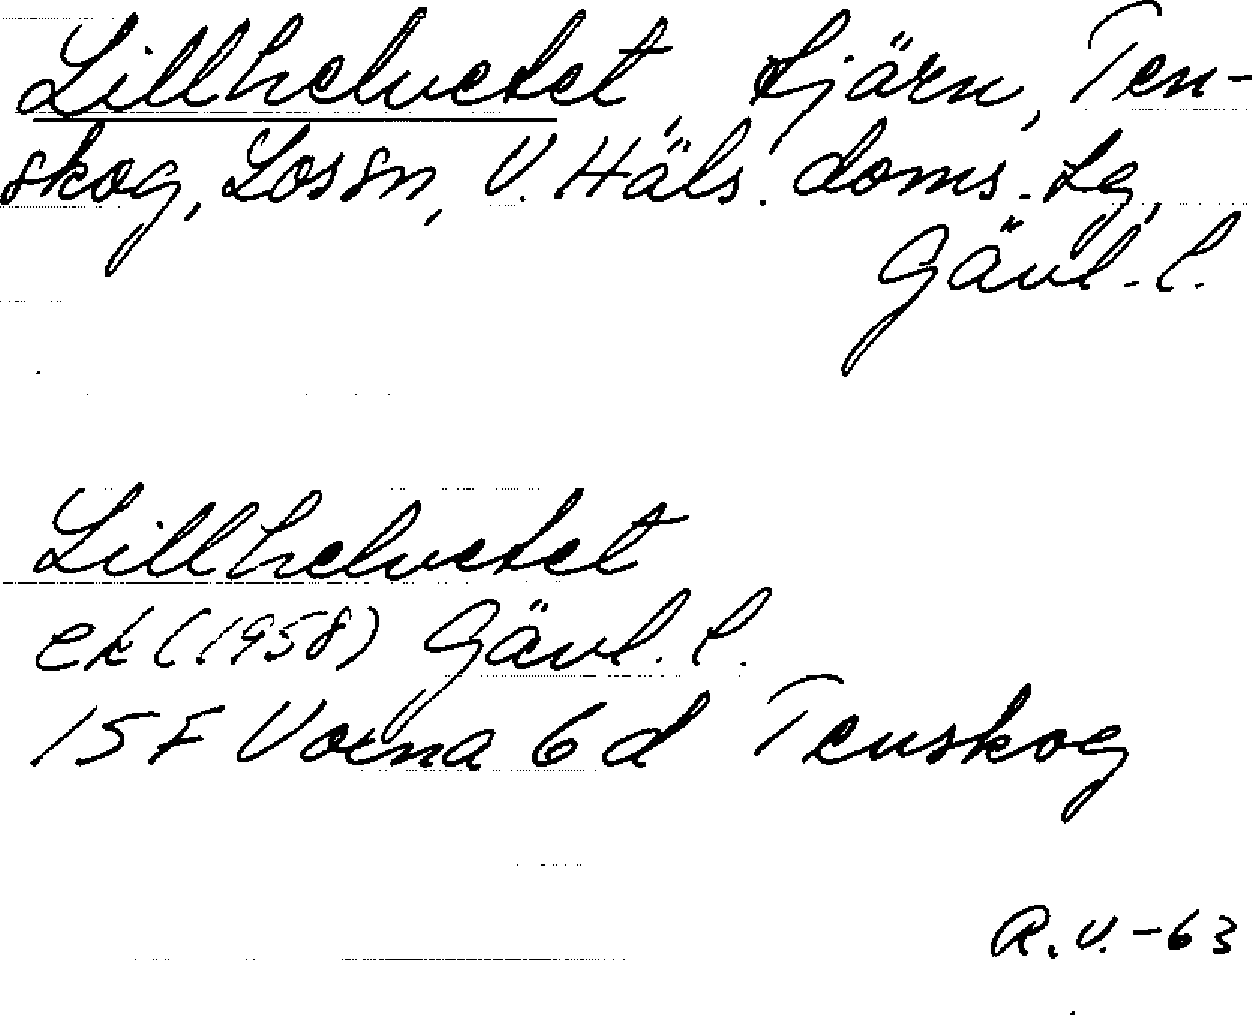 Lillhelvetet, tjärn, Ten-
skog, Los sn, V. Häls. doms. Lg,
Gävl. l.
Lillhelvetet
ek (1958) Gävl. l.
15 F Voxna 6 d Tenskog
R. V. -63